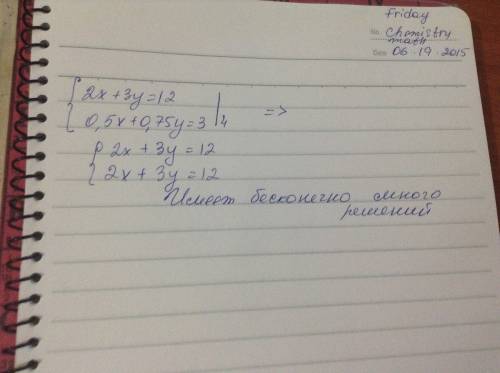 Friday
No. Chemistry
math
Date 06.19.2015
{ 2x+3y=12
0,5x+0,75y=3 |4 =>
{ 2x + 3y = 12
2x + 3y = 12
Имеет бесконечно много
решений